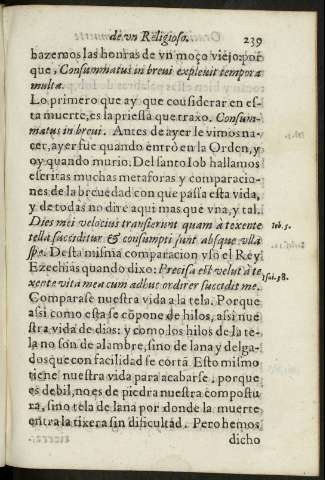 de vn Religioso.
239
hazemos las honras de vn moço viejo: por
que, Consummatus in brevi explevit tempora
multa.
Lo primero que ay que considerar en es-
ta muerte, es la priessa que traxo. Consum-
matus in brevi. Antes de ayer le vimos na-
cer, ayer fue quando entrò en la Orden, y
oy quando murio. Del santo Iob hallamos
escritas muchas metaforas y comparacio-
nes de la breuedad con que passa esta vida,
y de todas no dire aqui mas que vna, y tal.
Dies mei velocius transierunt quam à texente
Iob. 7.
tella succiditur & consumpti sunt absque vlla
spe. Desta misma comparacion vso el Rey
Ezechias quando dixo: Precisa est velut à te-
Isai. 38.
xente vita mea cum adhuc ordirer succidit me.
Comparase nuestra vida a la tela. Porque
assi como esta se cõpone de hilos, assi nue
stra vida de dias: y como los hilos de la te-
la no son de alambre, sino de lana y delga-
dos que con facilidad se cortã. Esto mismo
tiene nuestra vida para acabarse, porque
es debil, no es de piedra nuestra compostu
ra, sino tela de lana por donde la muerte
entra la tixera sin dificultad. Pero hemos
dicho